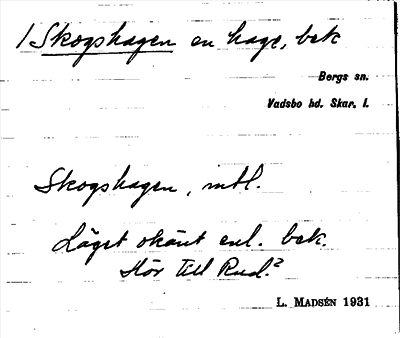 1 Skogshagen en hage, bek
Bergs sn.
Vadsbo hd. Skar. l.
Skogshagen, mtl.
Läget okänt enl. bek.
Hör till Rud.²
L. MADSÉN 1931